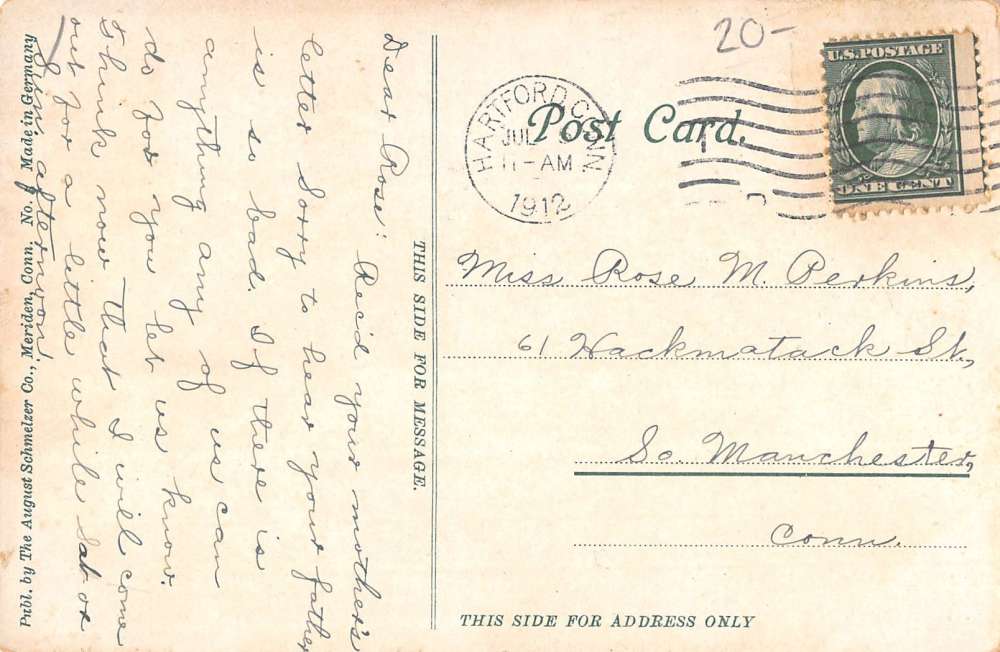 20-
U.S. POSTAGE
ONE CENT
HARTFORD, CONN
JUL
11-AM
1912
Post Card.
Miss Rose M. Perkins,
61 Hackmatack St.,
So. Manchester,
Conn.
THIS SIDE FOR ADDRESS ONLY
THIS SIDE FOR MESSAGE.
Dear Rose: Rec'd your mother's
letter Sory to hear your father
is so bad. If there is
anything any of us can
do for you let us know.
Think now that I will come
out for a little while Sat or
Sun. afternoon!
Publ. by The August Schmelzer Co., Meriden, Conn. No. Made in Germany